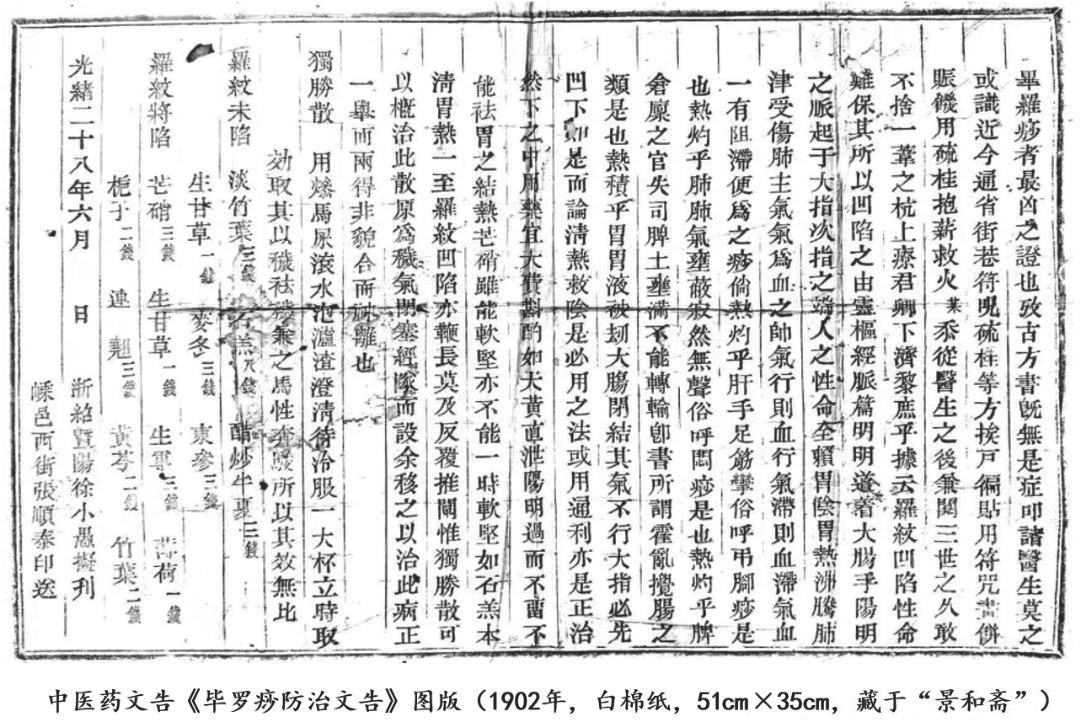 畢羅痧者最凶之證也攷古方書旣無是症叩諸醫生莫之
或識近今通省街巷符呪硫桂等方挨戶徧貼用符咒畫餅
賑饑用硫桂抱薪救火某忝從醫生之後兼閱三世之久敢
不捨一葦之杭上療君卿下濟黎庶乎據云羅紋凹陷性命
難保其所以凹陷之由靈樞經脈篇明明道着大腸手陽明
之脈起于大指次指之端人之性命全賴胃陰胃熱沸騰肺
津受傷肺主氣氣爲血之帥氣行則血行氣滯則血滯氣血
一有阻滯便爲之痧倘熱灼乎肝手足筋攣俗呼弔脚痧是
也熱灼乎肺肺氣壅蔽寂然無聲俗呼悶痧是也熱灼乎脾
倉廩之官失司脾土壅滿不能轉輸卽書所謂霍亂攪腸之
類是也熱積乎胃胃液被刼大腸閉結其氣不行大指必先
凹下如是而論清熱救陰是必用之法或用通利亦是正治
然下之中用藥宜大費斟酌如大黃直泄陽明過而不畱不
能祛胃之結熱芒硝雖能軟堅亦不能一時軟堅如石羔本
淸胃熱一至羅紋凹陷亦鞭長莫及反覆推闡惟獨勝散可
以槪治此散原爲穢氣閉塞經隧而設余移之以治此病正
一舉而兩得非貌合而神離也
獨勝散 用燥馬屎滾水泡濾渣澄清待冷服一大杯立時取
効取其以穢祛穢兼之馬性奔駿所以其效無比
羅紋未陷 淡竹葉三錢 石羔 錢 醋炒半夏三錢
生甘草一錢 麥冬三錢 東參三錢
羅紋將陷 芒硝三錢 生甘草一錢 生軍三錢 薄荷一錢
梔子二錢 連翹三錢 黃芩二錢 竹葉二錢
光緒二十八年六月 日 浙紹暨陽徐小愚擬刊
嵊邑西街張順泰印送
中医药文告《毕罗痧防治文告》图版（1902年，白棉纸，51cm×35cm，藏于“景和斋”）